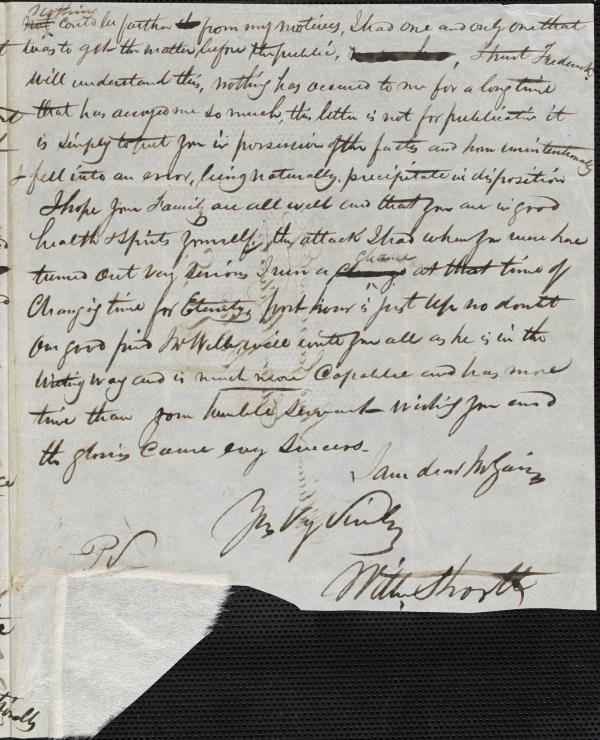 Nothing
could be further from my motives, I had one and only one that
was to get the matter before the public, I trust Frederick
will understand this, nothing has occured to me for a long time
that has annoyed me so much, this letter is not for publication it
is simply to put you in possession of the facts and how unintentionally
I fell into an error, being naturally precipitate in disposition
I hope your Family are all well and that you are in good
health & spirits yourself, the attack I had when you were here
turned out very serious I run a chance at that time of
changing time for Eternity, post hour is just up no doubt
our good friend Mr Webb will write you all as he is in the
writing way and is much more capable and has more
time than your humble servant wishing you and
the glorious cause every success.
I am dear Mr Gain
Yrs Vy Sincly
PS